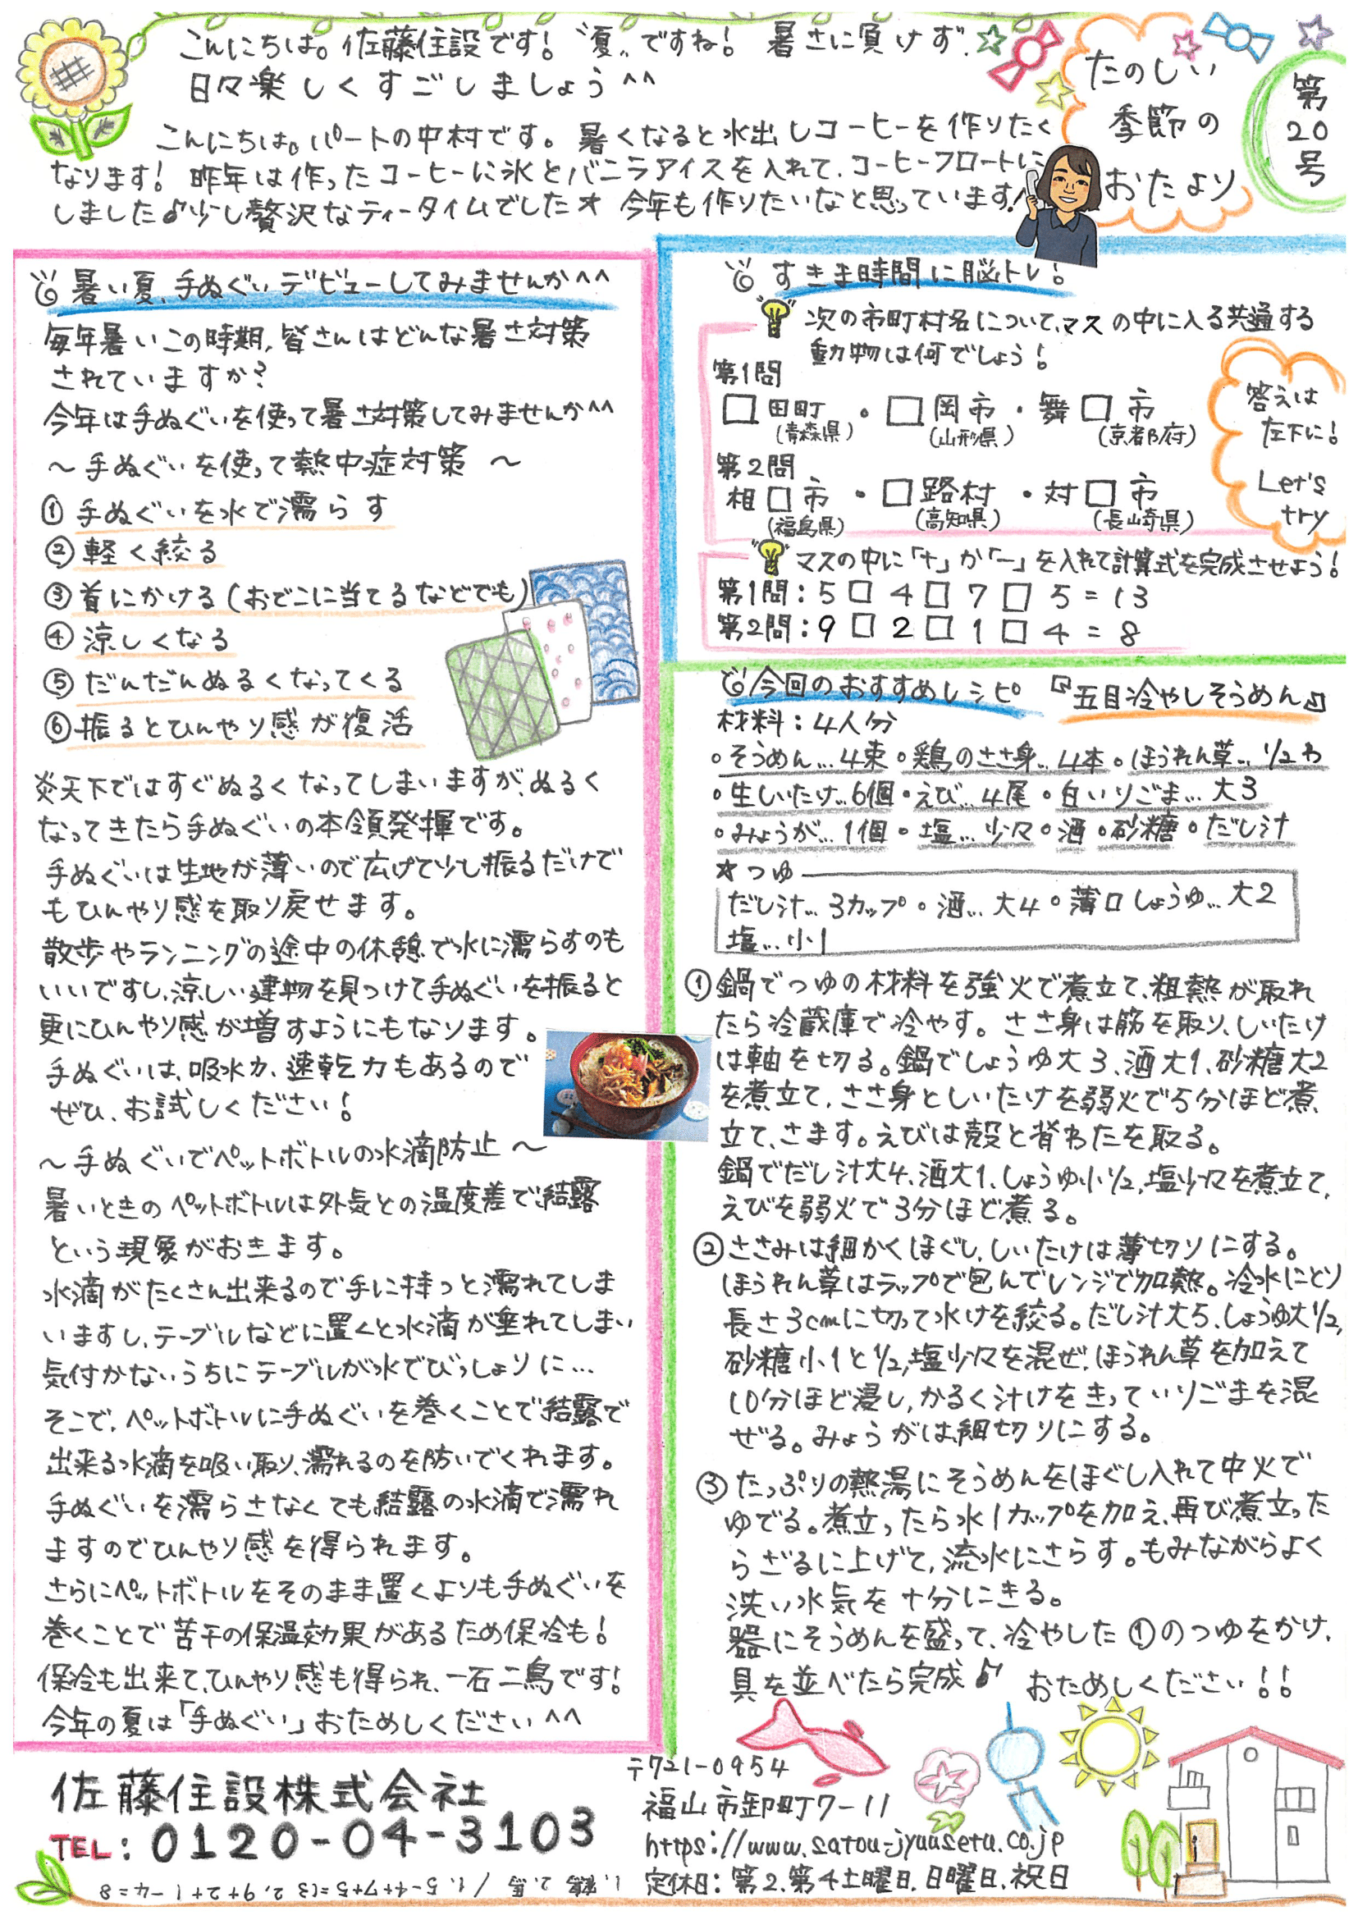 こんにちは。佐藤住設です！"夏"ですね！ 暑さに負けず、
日々楽しくすごしましょう^^
たのしい
季節の
おたより
第
20
号
こんにちは。パートの中村です。暑くなると水出しコーヒーを作りたく
なります！ 昨年は作ったコーヒーに氷とバニラアイスを入れて、コーヒーフロートに
しました♪少し贅沢なティータイムでした☆ 今年も作りたいなと思っています！
暑い夏、手ぬぐいデビューしてみませんか^^
毎年暑いこの時期、皆さんはどんな暑さ対策
されていますか？
今年は手ぬぐいを使って暑さ対策してみませんか^^
～手ぬぐいを使って熱中症対策～
① 手ぬぐいを水で濡らす
② 軽く絞る
③ 首にかける（おでこに当てるなどでも）
④ 涼しくなる
⑤ だんだんぬるくなってくる
⑥ 振るとひんやり感が復活
炎天下ではすぐぬるくなってしまいますが、ぬるく
なってきたら手ぬぐいの本領発揮です。
手ぬぐいは生地が薄いので広げて少し振るだけで
もひんやり感を取り戻せます。
散歩やランニングの途中の休憩で水に濡らすのも
いいですし、涼しい建物を見つけて手ぬぐいを振ると
更にひんやり感が増すようにもなります。
手ぬぐいは、吸水力、速乾力もあるので
ぜひ、お試しください！
～手ぬぐいでペットボトルの水滴防止～
暑いときのペットボトルは外気との温度差で、結露
という現象がおきます。
水滴がたくさん出来るので手に持つと濡れてしま
いますし、テーブルなどに置くと水滴が垂れてしまい
気付かないうちにテーブルが水でびっしょりに…
そこで、ペットボトルに手ぬぐいを巻くことで結露で
出来る水滴を吸い取り、濡れるのを防いでくれます。
手ぬぐいを濡らさなくても結露の水滴で濡れ
ますのでひんやり感を得られます。
さらにペットボトルをそのまま置くよりも手ぬぐいを
巻くことで若干の保温効果があるため保冷も！
保冷も出来て、ひんやり感も得られ、一石二鳥です！
今年の夏は「手ぬぐい」おためしください^^
すきま時間に脳トレ！
次の市町村名について、マスの中に入る共通する
動物は何でしょう！
第1問
□田町・□岡市・舞□市
（青森県）（山形県）（京都府）
第2問
相□市・□路村・対□市
（福島県）（高知県）（長崎県）
答えは
左下に！
Let's
try
マスの中に「+」か「-」を入れて計算式を完成させよう！
第1問：5□4□7□5=13
第2問：9□2□1□4=8
今回のおすすめレシピ『五目冷やしそうめん』
材料：4人分
・そうめん…4束・鶏のささ身…4本・ほうれん草…1/2わ
・生しいたけ…6個・えび…4尾・白いりごま…大3
・みょうが…1個・塩…少々・酒・砂糖・だし汁
★つゆ
だし汁…3カップ・酒…大4・薄口しょうゆ…大2
塩…小1
① 鍋でつゆの材料を強火で煮立て、粗熱が取れ
たら冷蔵庫で冷やす。ささ身は筋を取り、しいたけ
は軸を切る。鍋でしょうゆ大3、酒大1、砂糖大2
を煮立て、ささ身としいたけを弱火で5分ほど煮
立て、さます。えびは殻と背わたを取る。
鍋でだし汁大4、酒大1、しょうゆ小1/2、塩少々を煮立て、
えびを弱火で3分ほど煮る。
② ささみは細かくほぐし、しいたけは薄切りにする。
ほうれん草はラップで包んでレンジで加熱。冷水にとり
長さ3cmに切って水けを絞る。だし汁大5、しょうゆ大1/2、
砂糖小1と1/2、塩少々を混ぜ、ほうれん草を加えて
10分ほど浸し、かるく汁けをきっていりごまを混
ぜる。みょうがは細切りにする。
③ たっぷりの熱湯にそうめんをほぐし入れて中火で
ゆでる。煮立ったら水1カップを加え、再び煮立った
らざるに上げて、流水にさらす。もみながらよく
洗い水気を十分にきる。
器にそうめんを盛って、冷やした①のつゆをかけ、
具を並べたら完成♪ おためしください！！
佐藤住設株式会社
TEL：0120-04-3103
〒721-0954
福山市卸町7-11
https://www.satou-jyuusetu.co.jp
定休日：第2、第4土曜日、日曜日、祝日
1.鶴 2.馬 / 1. 5-4+7+5=13 2. 9+2+1-4=8